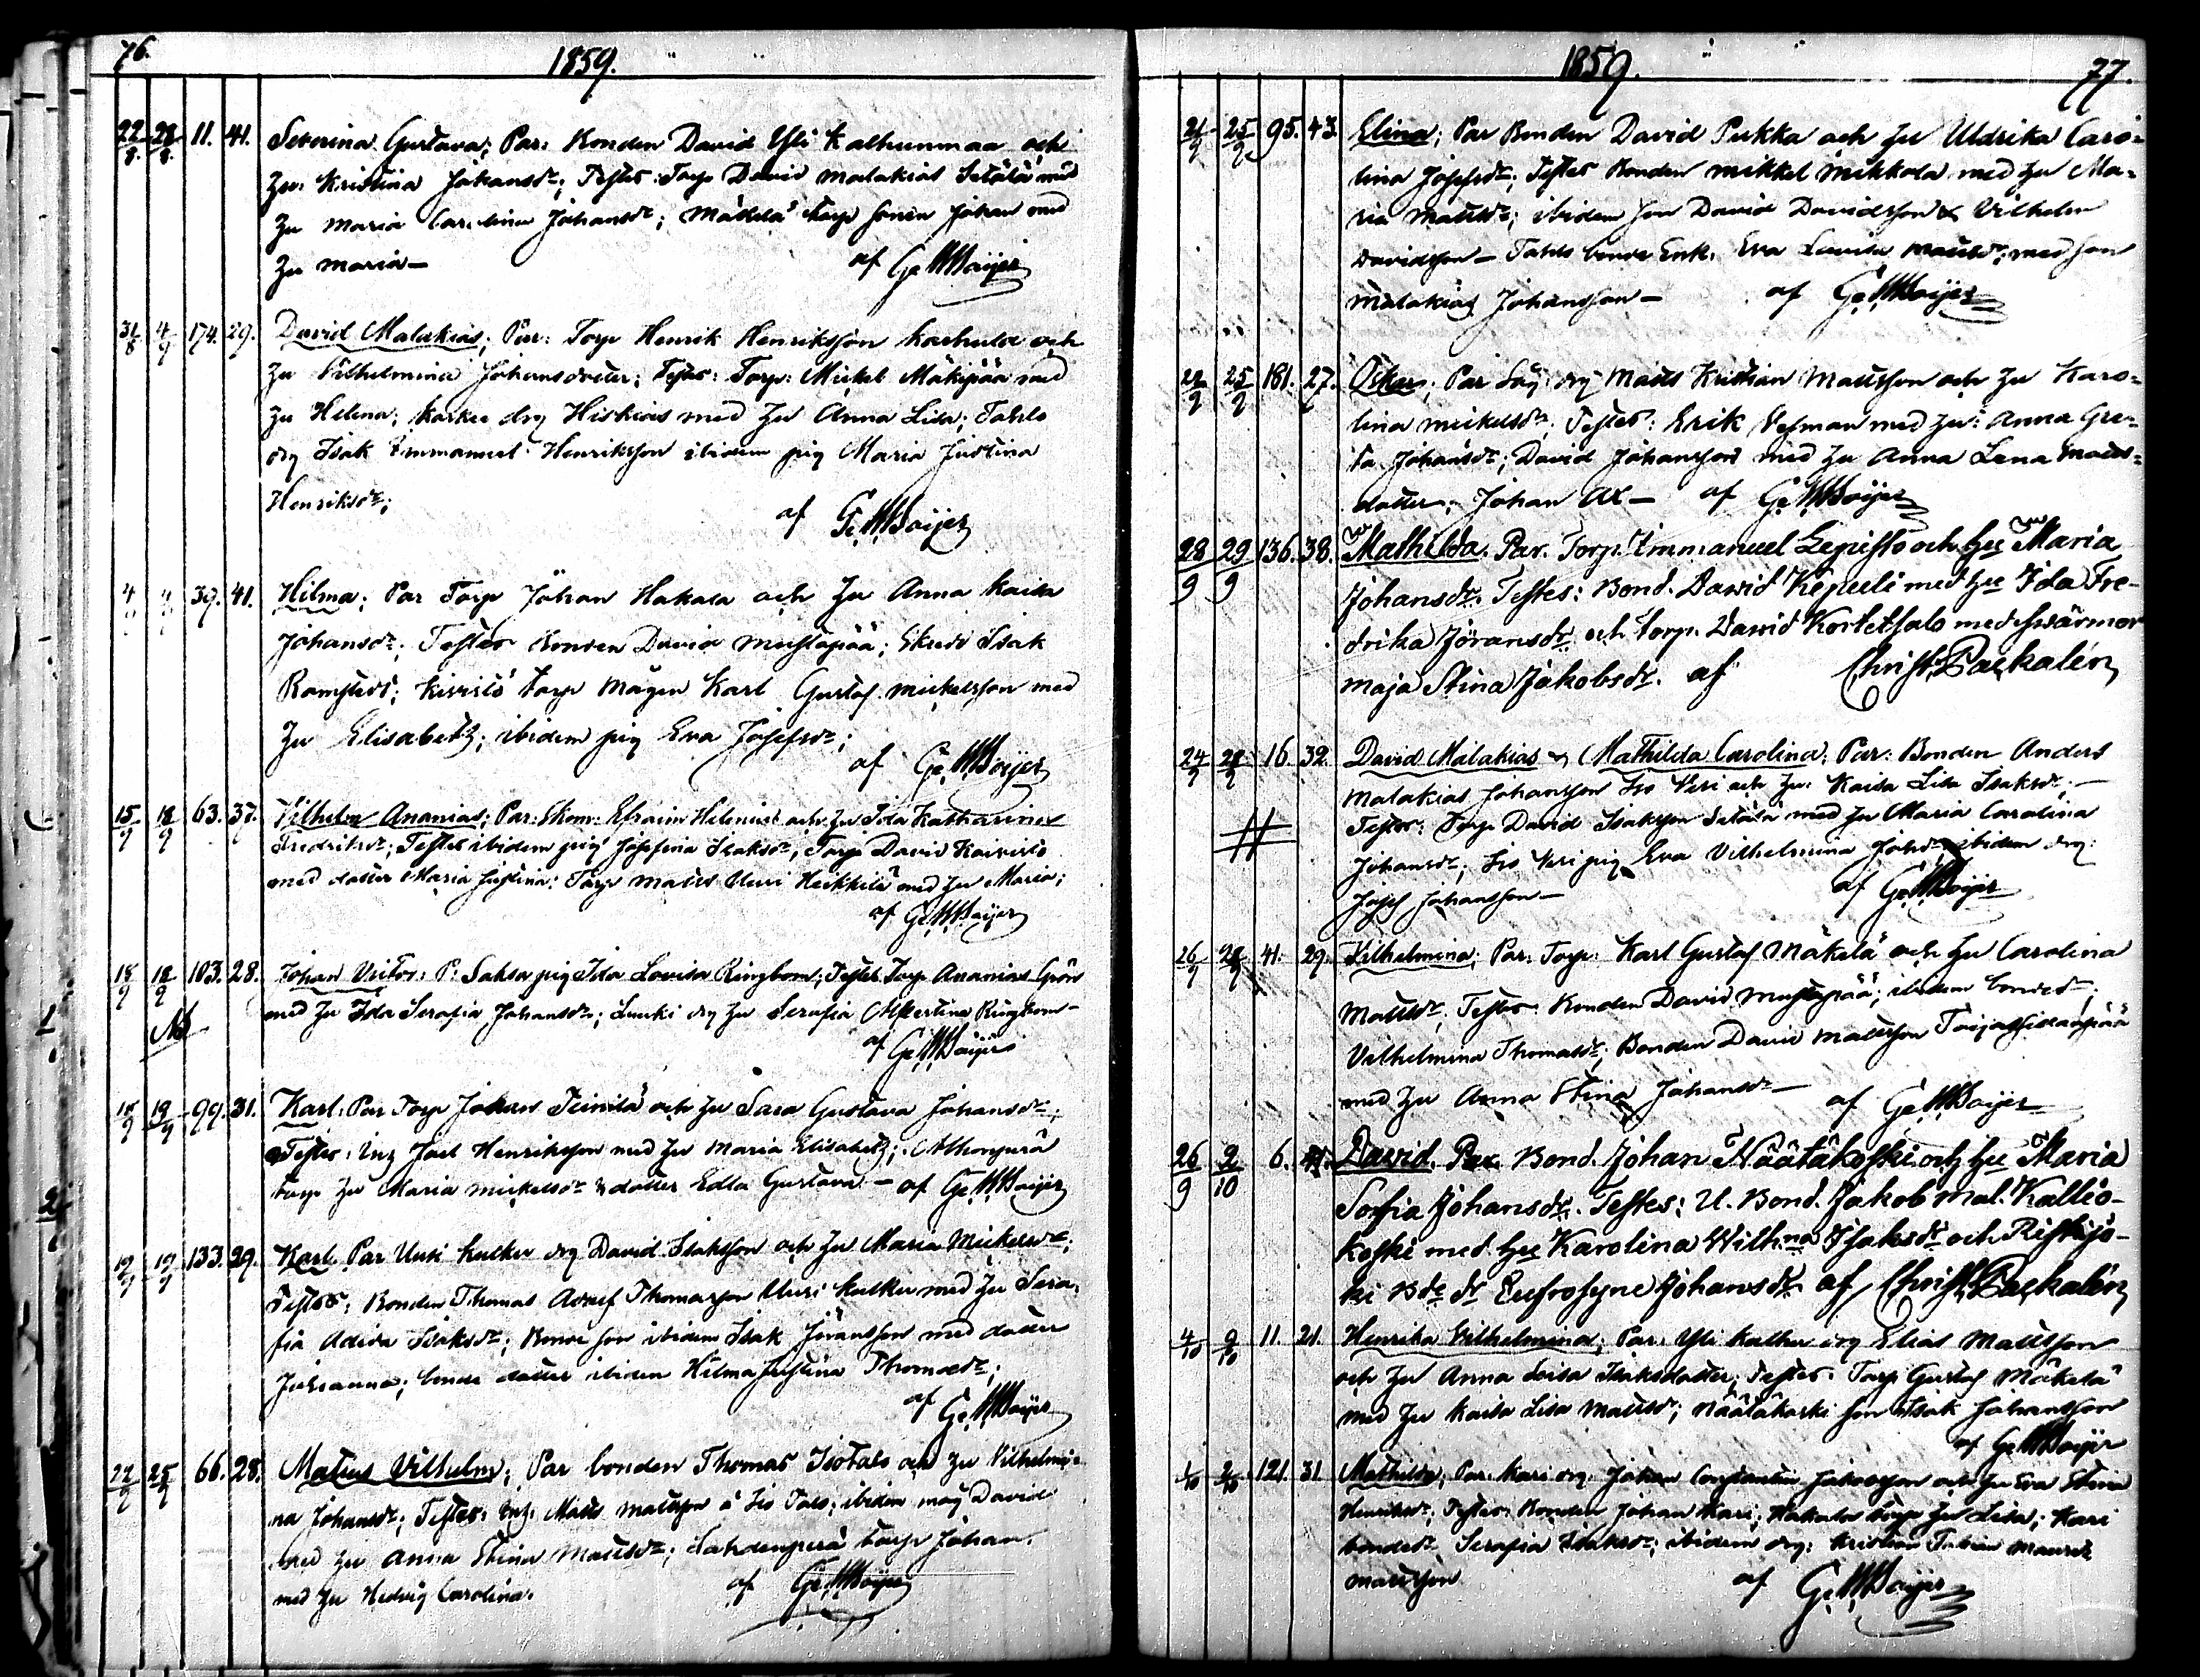 76.
1859.
22/8. 28/8. 11. 41. Severina Gustava; Par: Bonden David Yli Kalhunmaa och
hu: Kristina Johansdr; Testes: Torp David Malakias Setälä med
hu Maria Carolina Johansdr; Mäkelä torp sonen Johan med
hu Maria— af G. W. Boijer
31/8 4/9 174. 29. David Malakias; Par: Torp Henrik Henriksson Karhula och
hu Vilhelmina Johansdotter; Testes: Torp: Mickel Mäkipää med
hu Helena; drg Hiskias med hu Anna Lisa; Tahlo
drg Isak Emmanuel Henriksson ibidem pig Maria Justina
Henriksdr; af G. W. Boijer
4 4 39. 41. Hilma; Par Torp Johan Hakala och hu Anna Kaisa
Johansdr; Testes Bonden David Mustapää; Isak
Ramstedt; Kivistö torp mågen Karl Gustaf Mickelsson med
hu Elisabeth; ibidem pig Eva Josefsdr;
af G. W. Boijer
15/9 18/9 63. 37. Vilhelm Ananias; Par: Skom: Efraim Helenius och hu Ida Katharina
Fredriksdr; Testes ibidem pig Josefina Isaksdr; Torp David Koivisto
med dotter Maria Justina; Torp Matts Uusi Heikkilä med hu Maria;
af G. W. Boijer
18/9 18/9 103. 28. Johan Victor; P: Saksa pig Ida Lovisa Ringbom; Testes Torp Ananias
med hu Ida Serafia Johansdr; drg hu Serafia Albertina Ringbom—
af G. W. Boijer
19/9 99. 31. Karl; Par Torp Johan Teinilä och hu Sara Gustava Johansdr;
Testes: Inh Joel Henriksson med hu Maria Elisabeth;
torp hu Maria Mickelsdr & dotter Edla Gustava— af G. W. Boijer
19/9 133. 29. Karl Par Uusi Kulku drg David Isaksson och hu Maria Mickelsdr;
Testes: Bonden Thomas Adolf Thomasson Uusi Kulku med hu Sera-
fia Isaksdr; Bonde son ibidem Isak Jöransson med dotter
Johanna; bonde dotter ibidem Hilma Justina Thomasdr;
af G. W. Boijer
22/9 25/9 66. 28. Matts Vilhelm; Par bonden Thomas Isotalo och hu Vilhelmi-
na Johansdr; Testes: Inh. Matts Mattsson å Iso Talo; ibidem måg David
med hu Anna Stina Mattsdr; Lahdenperä torp Johan
med hu Hedvig Carolina. af G. W. Boijer
1859.
77.
21/9 25/9 95. 43. Elina; Par Bonden David Pukka och hu Uldrika Caro-
lina Josefsdr; Testes Bonden Mikkel Mikkola med hu Ma-
ria Mattsdr; ibidem son David Davidsson & Vilhelm
Davidsson— Tahlo bonde Enk. Eva Lovisa Mattsdr; med son
Malakias Johansson— af G. W. Boijer
22/9 25/9 181. 27. Oskar; Par drg Matts Kristian Mattsson och hu Karo-
lina Mickelsdr; Testes: Erik med hu: Anna Gre-
ta Johansdr; David Johansson med hu Anna Lena Matts-
dotter; Johan Ax— af G. W. Boijer
28/9 29/9 136. 38. Mathilda. Par. Torp. Emmanuel Lepistö och hu Maria
Johansdr. Testes: Bond. David Kepuli med hu Ida Fre-
drika Jöransdr och torp. David Kortetsalo med svärmor
Maja Stina Jakobsdr. af Christ. Paekalén
24/9 28/9 16. 32. David Malakias & Mathilda Carolina; Par: Bonden Anders
Malakias Johansson Iso Vesi och hu: Kaisa Lisa Isaksdr;—
Testes: Torp David Isaksson Setälä med hu Maria Carolina
Johansdr; Iso Vesi pig Eva Vilhelmina Johsdr ibidem drg:
Josef Johansson— af G. W. Boijer
26/9 28/9 41. 29. Vilhelmina; Par: Torp: Karl Gustaf Mäkelä och hu Carolina
Mattsdr; Testes: Bonden David Mustapää; ibidem bondedr;
Vilhelmina Thomasdr; Bonden David Mattsson
med hu Anna Stina Johansdr— af G. W. Boijer
26/9 2/10 6. David. Par. Bond. Johan Näätäkoski och hu Maria
Sofia Johansdr. Testes: U. Bond. Jakob Mal. Kallio-
koski med hu Karolina Wilhna Isaksdr och Ristijo-
ki Bde dr Eufrosyne Johansdr. af Christ. Paekalén
4/10 9/10 11. 21. Henrika Vilhelmina; Par: Yli Kulku drg Elias Mattsson
och hu Anna Lovisa Isaksdotter; Testes: Torp Gustaf Mäkelä
med hu Kaisa Lisa Mattsdr; Näätäkoski son Isak Johansson
af G. W. Boijer
1/10 2/10 121. 31 Mathilda; Par: Kari drg. Johan Constantin Jakobsson och hu Eva Stina
Henriksdr; Testes: Bonden Johan Kari; Hakala torp hu Lisa; Kari
bondedr. Serafia Isaksdr; ibidem drg: Kristian Mauritz
Mattsson af G. W. Boijer